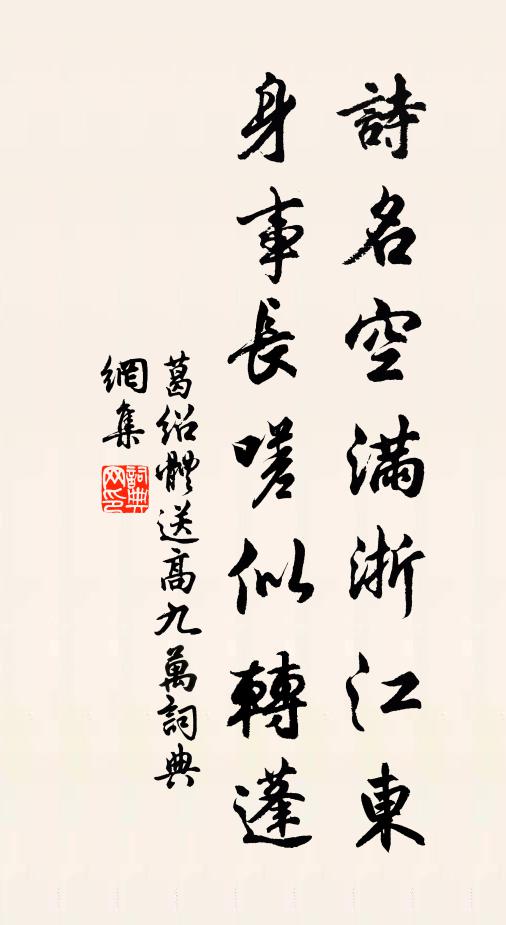 詩名空滿浙江東
身事長嗟似轉蓬
葛紹體送高九萬詞典
網集
詞典網印